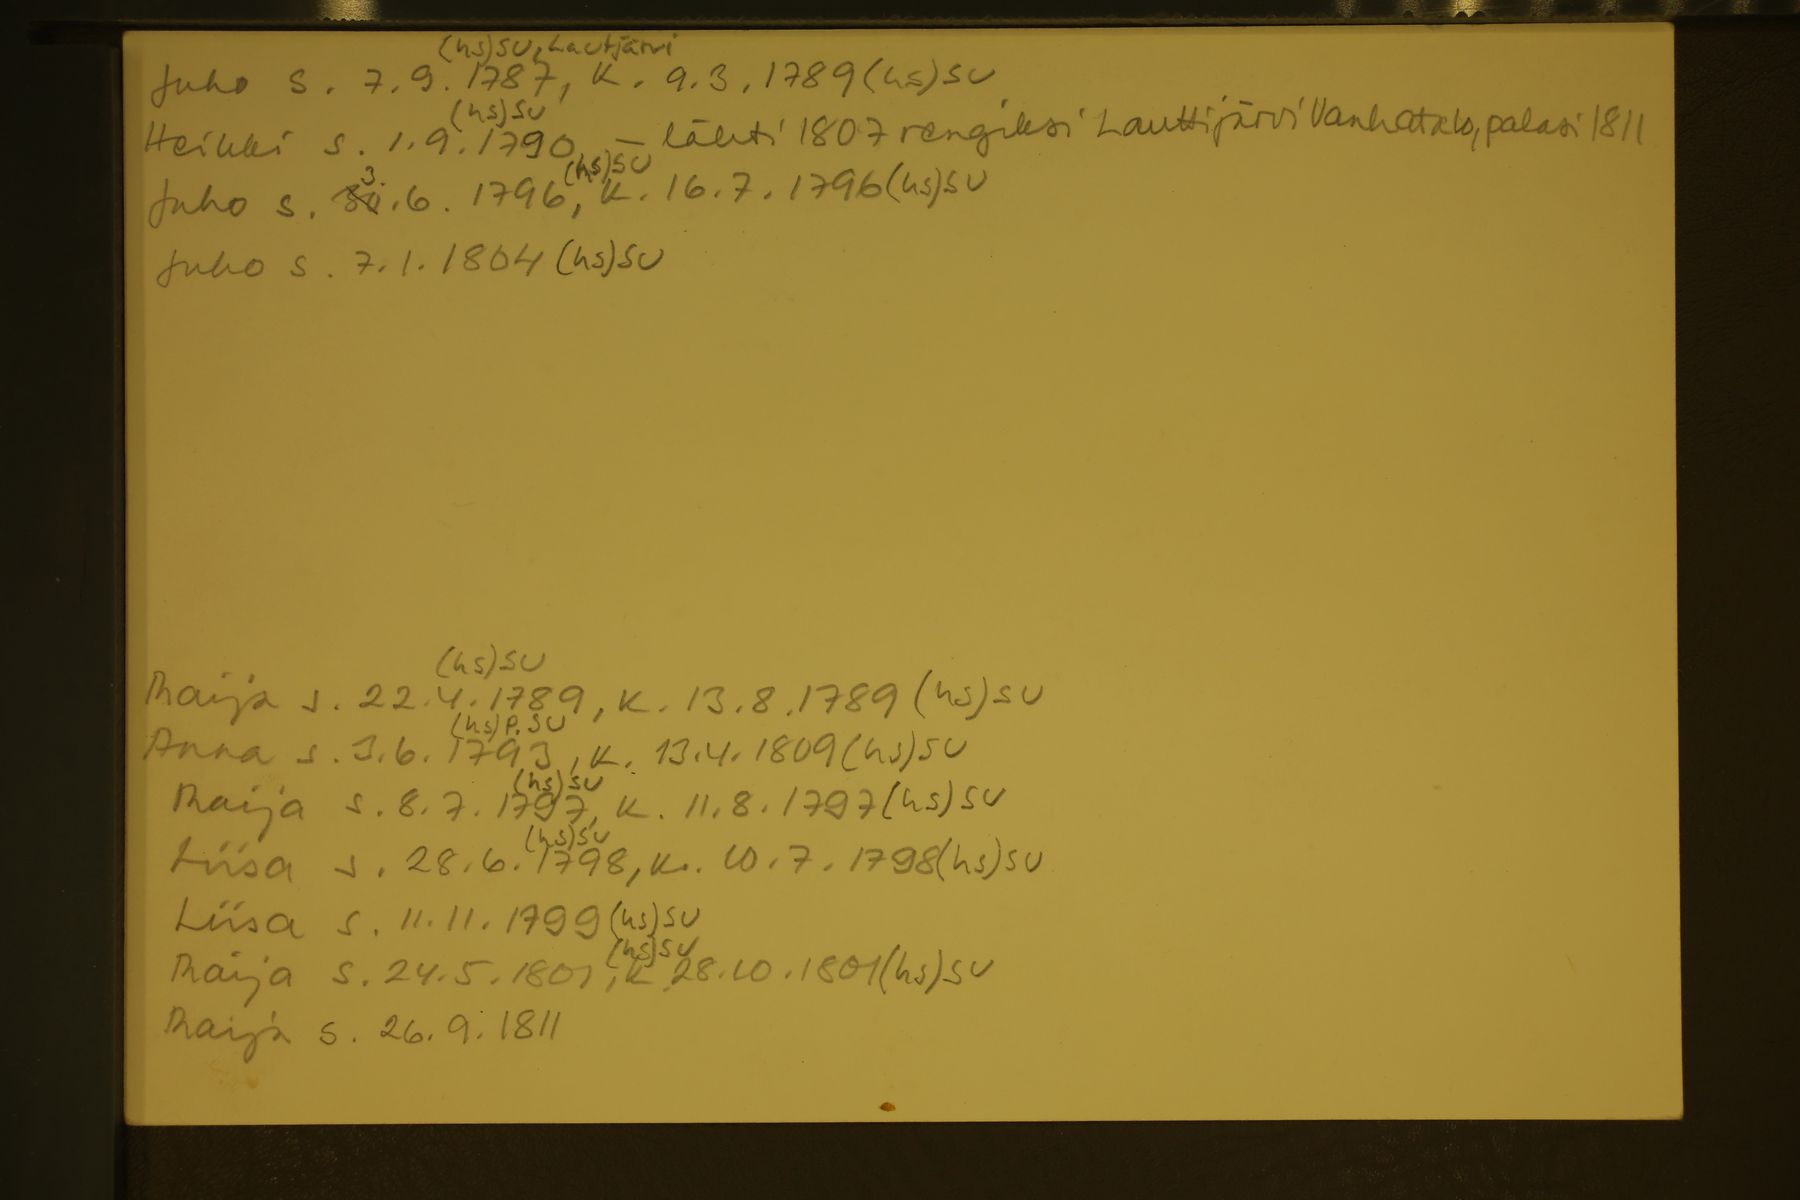 (hs)SU, Lautjärvi
Juho s. 7.9.1787, k. 9.3.1789 (hs)SU
(hs)SU
Heikki s. 1.9.1790, – lähti 1807 rengiksi Lauttijärvi Vanhatalo, palasi 1811
3. (hs)SU
Juho s. .6.1796, k. 16.7.1796 (hs)SU
Juho s. 7.1.1804 (hs)SU
(hs)SU
Maija s. 22.4.1789, k. 13.8.1789 (hs)SU
(hs)P.SU
Anna s. 3.6.1793, k. 13.4.1809 (hs)SU
(hs)SU
Maija s. 8.7.1797, k. 11.8.1797 (hs)SU
(hs)SU
Liisa s. 28.6.1798, k. 10.7.1798 (hs)SU
Liisa s. 11.11.1799 (hs)SU
(hs)SU
Maija s. 24.5.1801, k 28.10.1801 (hs)SU
Maija s. 26.9.1811